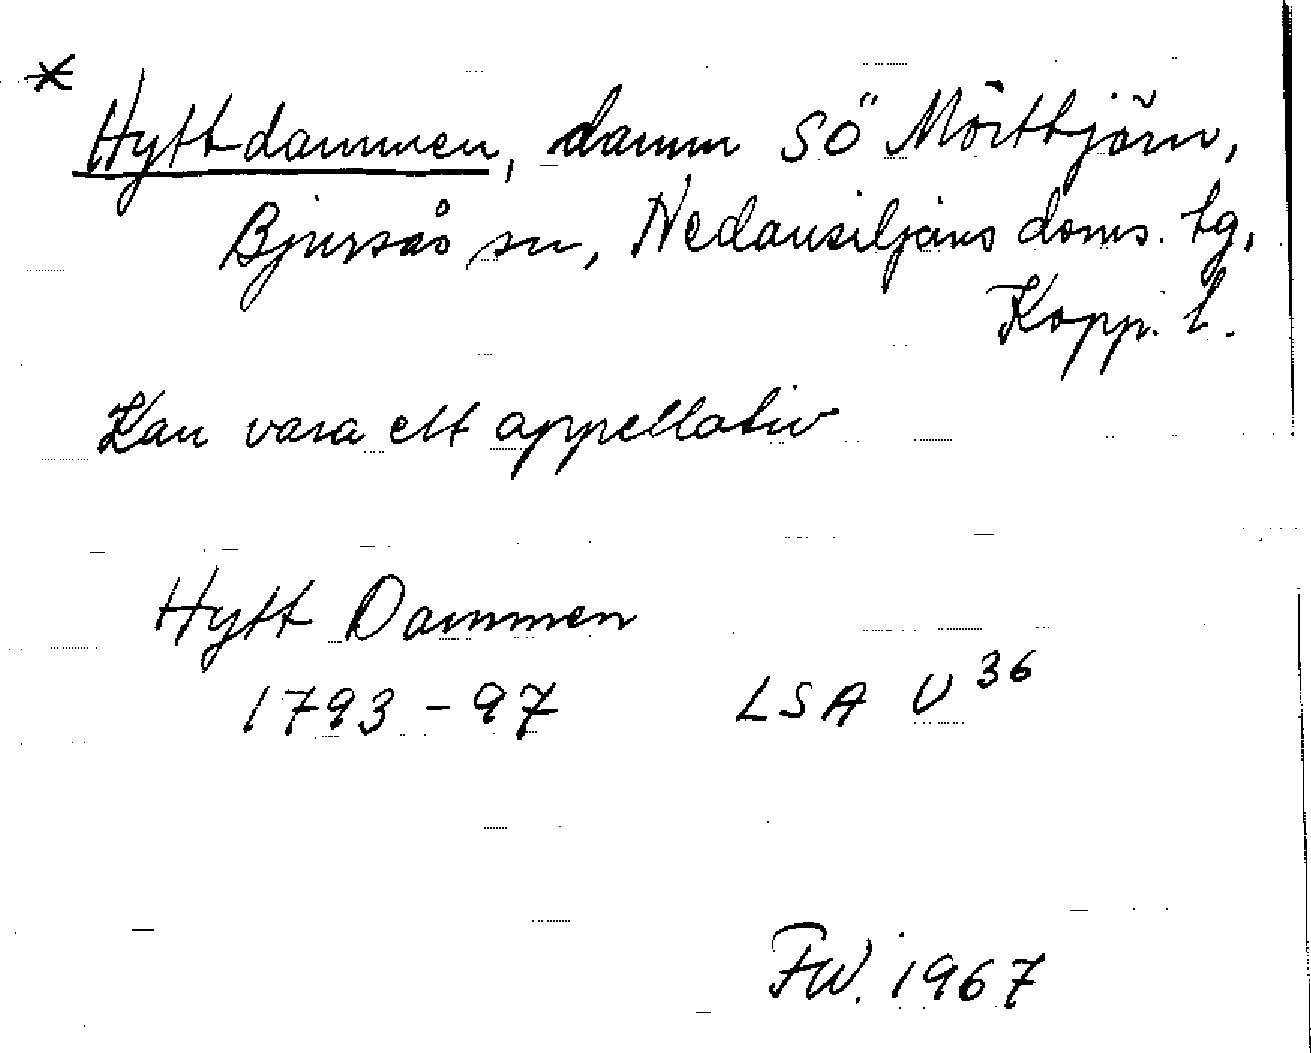 * Hyttdammen, damm SÖ Mörttjärn,
Bjursås sn, Nedansiljans doms. tg,
Kopp. l.
Kan vara ett appellativ
Hytt Dammen
1793-97 LSA U 36
FW. 1967